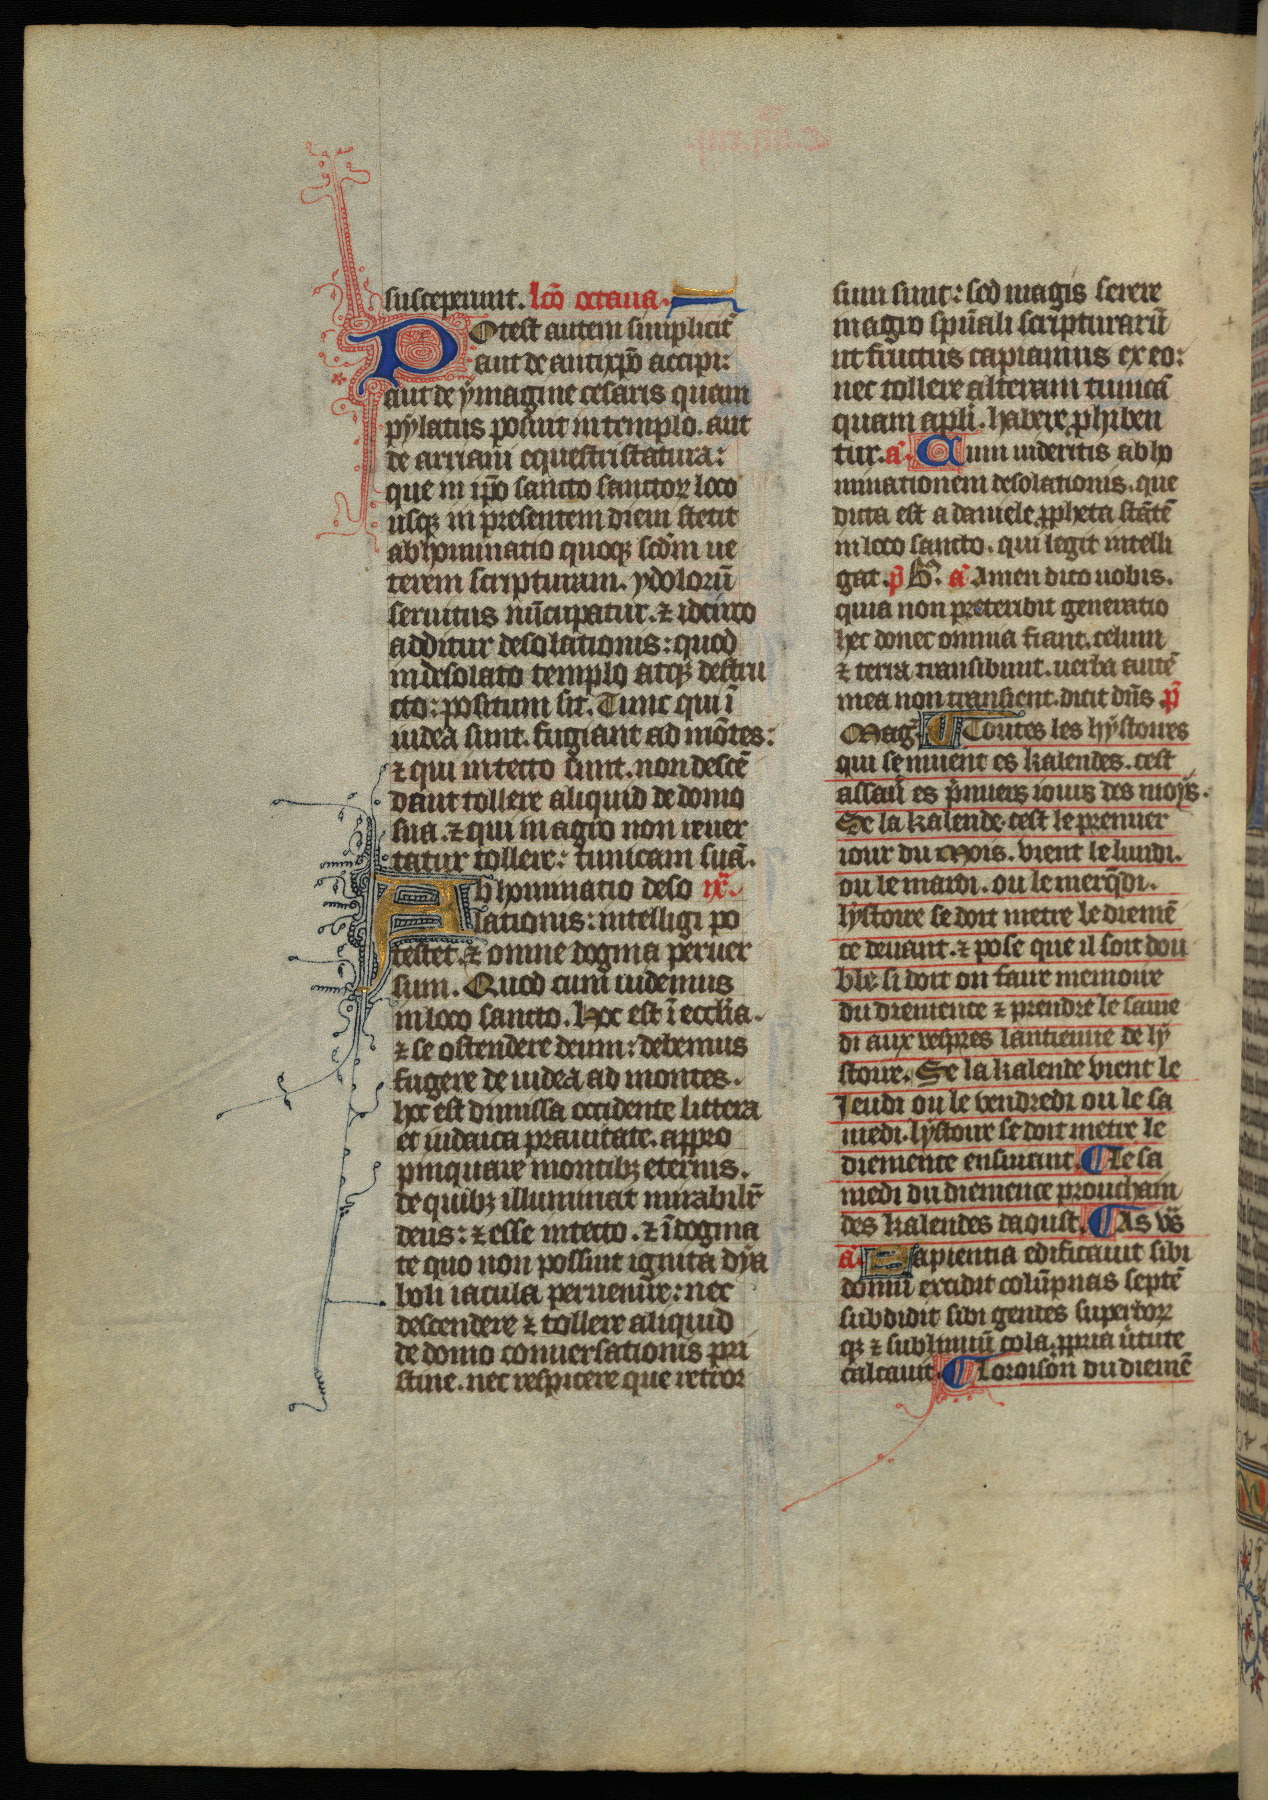 susceperunt. lcō octaua.
Potest autem simplicit̄
aut de antixp̄o accipi:
aut de ymagine cesaris quam
pylatus posuit in templo. aut
de arriani equestri statura:
que in ip̄o sancto sanctoꝝ loco
usqꝫ in presentem diem stetit
abhominatio quoqꝫ scd̄m ue
terem scripturam. ydolorū
seruitus nūcupatur. ⁊ idcirco
additur desolationis: quod
in desolato templo atqꝫ destru
cto: positum sit. Tunc qui ī
iudea sunt. fugiant ad mōtes:
⁊ qui in tecto sunt. non descē
dant tollere aliquid de domo
sua. ⁊ qui in agro non reuer
tatur tollere: tunicam suā.
Abhominatio deso ix.
lationis: intelligi po
testet. ⁊ omne dogma peruer
sum. Quod cum uidemus
in loco sancto. hoc est ī eccl̄ia.
⁊ se ostendere deum: debemus
fugere de iudea ad montes.
hoc est dimissa occidente littera
et iudaica prauitate. appro
pinquare montibꝫ eternis.
de quibꝫ illuminat mirabilit̄
deus: ⁊ esse in tecto. ⁊ ī dogma
te quo non possint ignita dya
boli iacula peruenire: nec
descendere ⁊ tollere aliquid
de domo conuersationis pri
stine. nec respicere que retror
sum sunt: sed magis serere
in agro spūali scripturarū
ut fructus capiamus ex eo:
nec tollere alteram tunicā
quam apl̄i. habere ꝓhiben
tur. a. Cum uideritis abho
minationem desolationis. que
dicta est a daniele ꝓpheta stātē
in loco sancto. qui legit intelli
gat. p̄ B. a Amen dico uobis.
quia non preteribit generatio
hec donec omnia fiant. celum
⁊ terra transibunt. uerba autē
mea non transient. dicit dn̄s. p̄
Maḡ. Toutes les hystoires
qui se muent es kalendes. cest
assaū es p̄miers iours des moys.
Se la kalende. cest le premier
iour du mois. vient le lundi.
ou le mardi. ou le merq̄di.
lystoire se doit metre le diemē
ce deuant. ⁊ pose que il soit dou
ble si doit on faire memoire
du diemence ⁊ prendre le same
di aux vespres lantienne de ly
stoire. Se la kalende vient le
Jeudi ou le vendredi ou le sa
medi. lystoire se doit metre le
diemence ensuiant. Le sa
medi du diemence prouchain
des kalendes daoust. As vs̄
a. Sapientia edificauit sibi
domū excidit colūpnas septē
subdidit sibi gentes superboꝝ
qꝫ ⁊ sublimiū cola ꝓpria ūtute
calcauit. Loroison du diemē